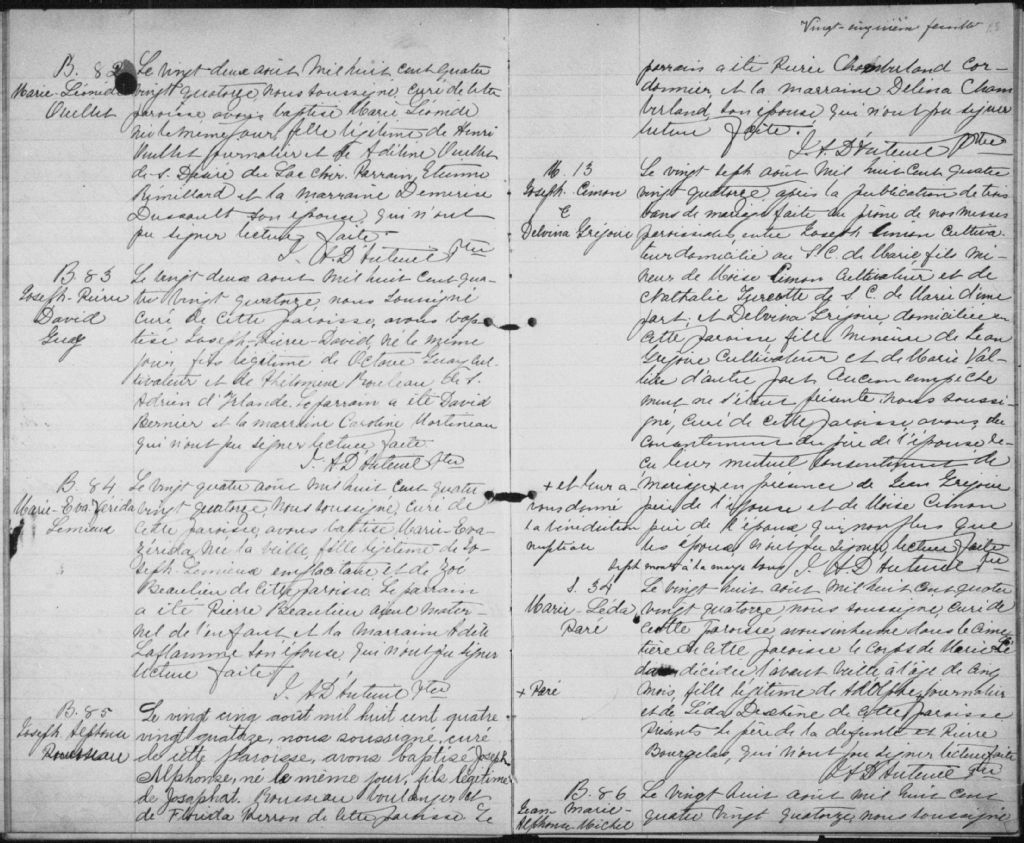 B. 82
Marie-Léonide
Ouellet
Le vingt deux août mil huit cent quatre
vingt quatorze, nous soussigné, curé de cette
paroisse, avons baptisé Marie Léonide
née le meme jour, fille légitime de Henri
Ouellet journalier et de Adiline Ouellet
de S. Désiré du Lac Noir. Parrain, Etienne
Rémillard et la marraine Demerise
Dussault son épouse, qui n'ont
pu signer lecture faite.
J. A. D'Auteuil Ptre
B. 83
Joseph-Pierre
David
Guay
Le vingt deux aout mil huit cent qua-
tre vingt quatorze nous soussigné
curé de cette paroisse, avons bap-
tisé Joseph-Pierre-David, né le même
jour, fils légitime de Octave Guay cul-
tivateur et de Philomene Rouleau de S.
Adrien d'Irlande. Le parrain a été David
Bernier et la marraine Caroline Martineau
qui n'ont pu signer lecture faite
J. A. D'Auteuil Ptre
B. 84
Marie-Eva Zérida
Lemieux
Le vingt quatre août mil huit cent quatre
vingt quatorze, nous soussigné, curé de
cette paroisse, avons baptisé Marie-Eva
Zérida, née la veille fille légitime de Jo-
seph Lemieux emplacitaire et de Zoé
Beaulieu de cette paroisse. Le parrain
a été Pierre Beaulieu aieul mater-
nel de l'enfant et la marraine Adèle
Laflamme son épouse, qui n'ont pu signer
lecture faite
J. A. D'Auteuil Ptre
B. 85
Joseph Alphonse
Rousseau
Le vingt cinq août mil huit cent quatre
vingt quatorze, nous soussigné, curé
de cette paroisse, avons baptisé Joseph
Alphonse, né le même jour, fils légitime
de Josaphat Rousseau boulanger et
de Florida Verron de cette paroisse. Le
feuillet
parrain a été Pierre Chamberland Cor-
donnier, et la marraine Delvina Cham
berland son épouse qui n'ont pu signer
lecture faite.
J. A. D'Auteuil Ptre
M. 13
Joseph Cimon
&
Delvina Grégoire
Le vingt sept août mil huit cent quatre
vingt quatorze après la publication de trois
bans de mariage faite au prône de nos messes
paroissiales, entre Joseph Cimon Cultiva-
teur domicilié au S. C. de Marie, fils mi-
neur de Moise Cimon Cultivateur et de
Nathalie Turcotte de S. C. de Marie d'une
part; et Delvina Grégoire, domiciliée en
cette paroisse fille mineure de Jean
Grégoire Cultivateur et de Marie Val-
lière d'autre part. Aucun empêche
ment ne s'étant présenté nous soussi-
gné, curé de cette paroisse, avons, du
consentement du père de l'épouse re-
çu leur mutuel consentement de
mariage + en présence de Jean Grégoire
père de l'épouse et de Moise Cimon
père de l'époux qui non plus que
les époux n'ont pu signer, lecture faite
+ et leur a-
vons donné
la bénédiction
nuptiale
sept mots à la marge bons
J. A. D'Auteuil Ptre
S. 34
Marie-Léda
Paré
Le vingt huit août mil huit cent quatre
vingt quatorze nous soussigné, curé de
cette paroisse, avons inhumé dans le cime
tière de cette paroisse le corps de Marie Lé
da + décédée l'avant veille à l'âge de cinq
mois, fille légitime de Adolphe journalier
et de Léda Deschêne de cette paroisse
Présents le père de la défunte et Pierre
Bourgelas, qui n'ont pu signer lecture faite
+ Paré
J. A. D'Auteuil Ptre
B. 86
Jean-Marie-
Alphonse Michel
Le vingt huit août mil huit cent
quatre vingt quatorze, nous soussigné,